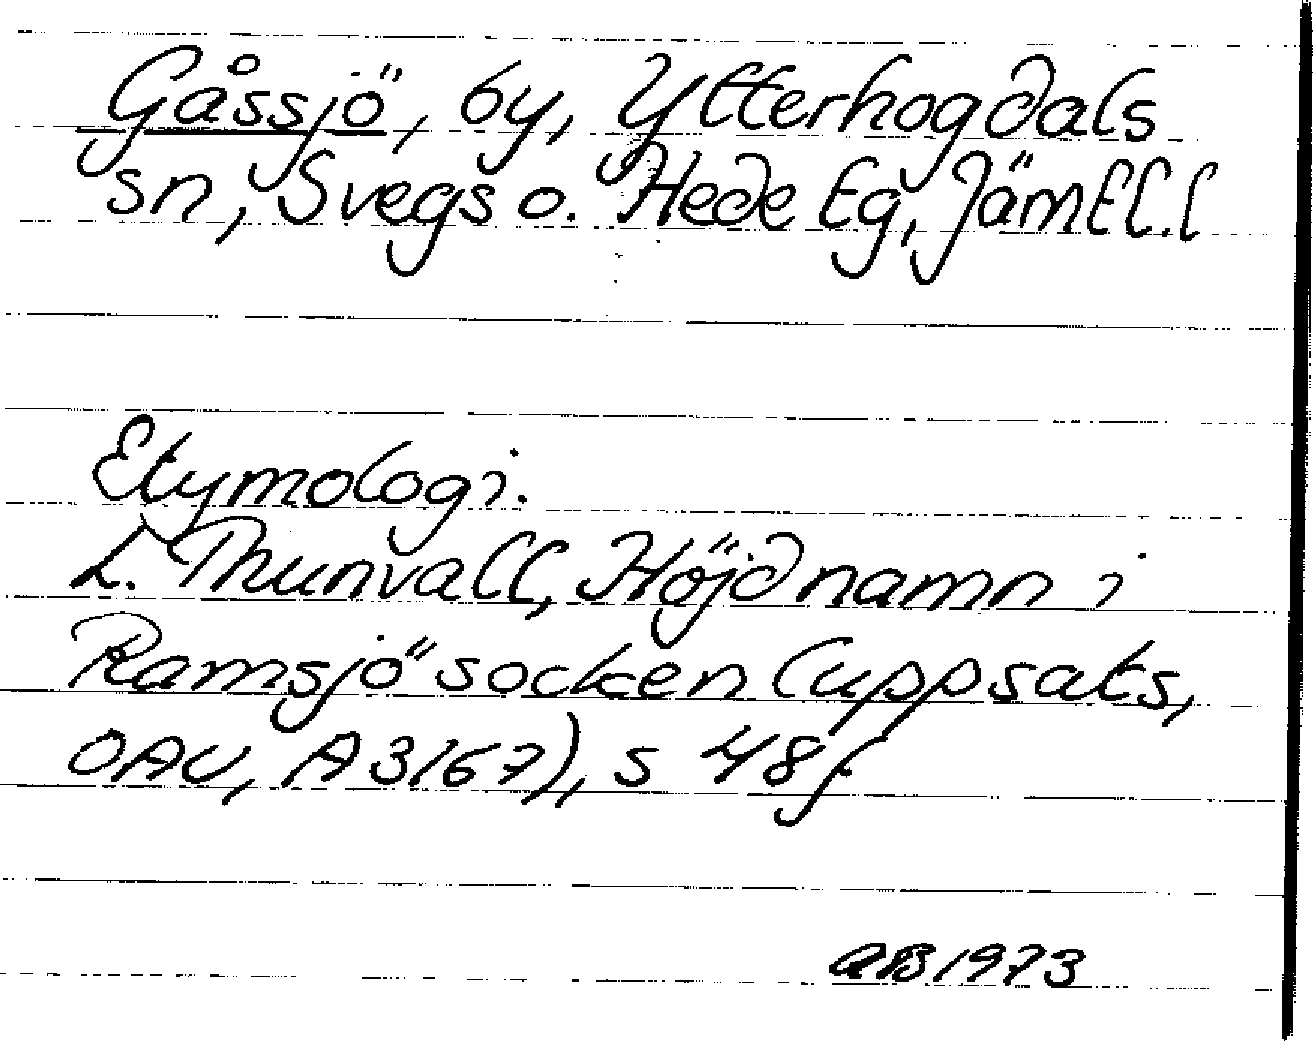 Gåssjö, by, Ytterhogdals
sn, Svegs o. Hede tg, Jämtl. l
Etymologi.
L. Thunvall, Höjdnamn i
Ramsjö socken (uppsats,
OAU, A 3167), s 48f
AB 1973